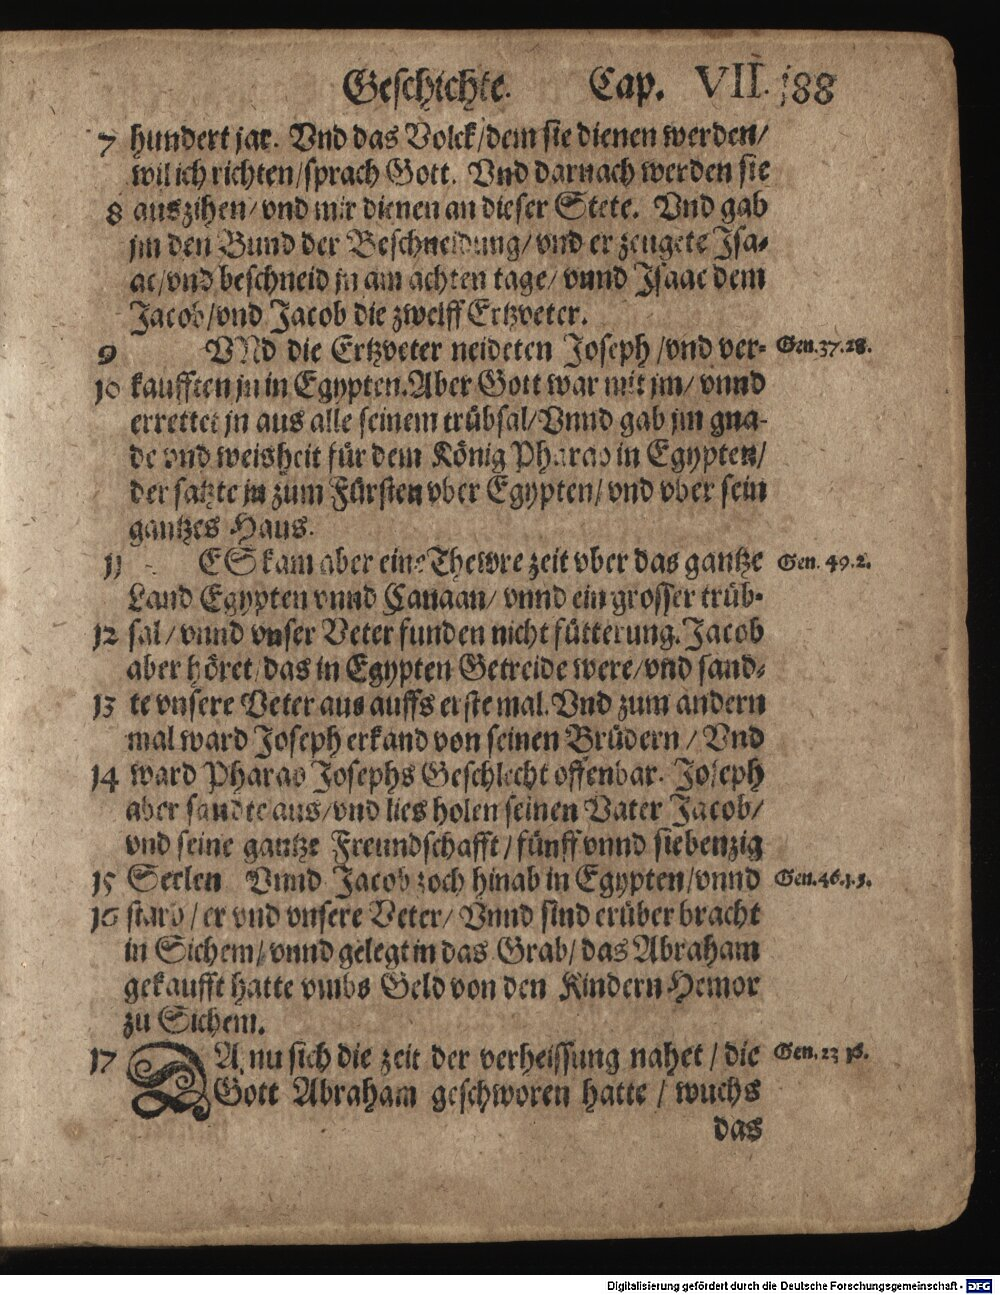 Geschichte. Cap. VII. 188
7 hundert jar. Vnd das Volck/dem sie dienen werden/
wil ich richten/sprach Gott. Vnd darnach werden sie
8 auszihen/vnd mir dienen an dieser Stete. Vnd gab
jm den Bund der Beschneidung/vnd er zeugete Isa-
ac/vnd beschneid jn am achten tage/vnnd Isaac dem
Jacob/vnd Jacob die zwelff Ertzveter.
9 VNd die Ertzveter neideten Joseph/vnd ver- Gen.37.28.
10 kaufften jn in Egypten.Aber Gott war mit jm/vnnd
errettet jn aus alle seinem trübsal/Vnnd gab jm gna-
de vnd weisheit für dem König Pharao in Egypten/
der satzte jn zum Fürsten vber Egypten/vnd vber sein
gantzes Haus.
11 ES kam aber eine Thewre zeit vber das gantze Gen. 49.2.
Land Egypten vnnd Canaan/vnnd ein grosser trüb-
12 sal/vnnd vnser Veter funden nicht fütterung.Jacob
aber höret/das in Egypten Getreide were/vnd sand-
13 te vnsere Veter aus auffs erste mal.Vnd zum andern
mal ward Joseph erkand von seinen Brüdern/Vnd
14 ward Pharao Josephs Geschlecht offenbar. Joseph
aber sandte aus/vnd lies holen seinen Vater Jacob/
vnd seine gantze Freundschafft/fünff vnnd siebenzig
15 Seelen Vnnd Jacob zoch hinab in Egypten/vnnd Gen.46.1.5.
16 starb/er vnd vnsere Veter/Vnnd sind erüber bracht
in Sichem/vnnd gelegt in das Grab/das Abraham
gekaufft hatte vmbs Geld von den Kindern Hemor
zu Sichem.
17 DA nu sich die zeit der verheissung nahet/die Gen.23.16.
Gott Abraham geschworen hatte/wuchs
das
Digitalisierung gefördert durch die Deutsche Forschungsgemeinschaft - DFG